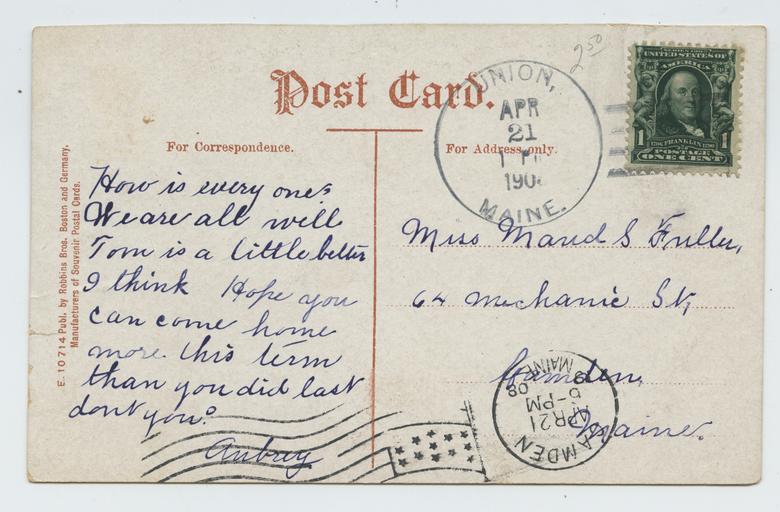 2.50
Post Card.
For Correspondence.
For Address only.
E. 10714 Publ. by Robbins Bros. Boston and Germany.
Manufacturers of Souvenir Postal Cards.
How is every one?
We are all well
Tom is a little better
I think Hope you
can come home
more this term
than you did last
dont you?
Aubrey
UNION,
APR
21
190
MAINE.
SERIES 1902
UNITED STATES OF
AMERICA
1 FRANKLIN 1
POSTAGE
ONE CENT
Miss Maud S Fuller,
64 Mechanic St,
Camden,
Maine.
CAMDEN
APR 21
5-PM
08
MAINE